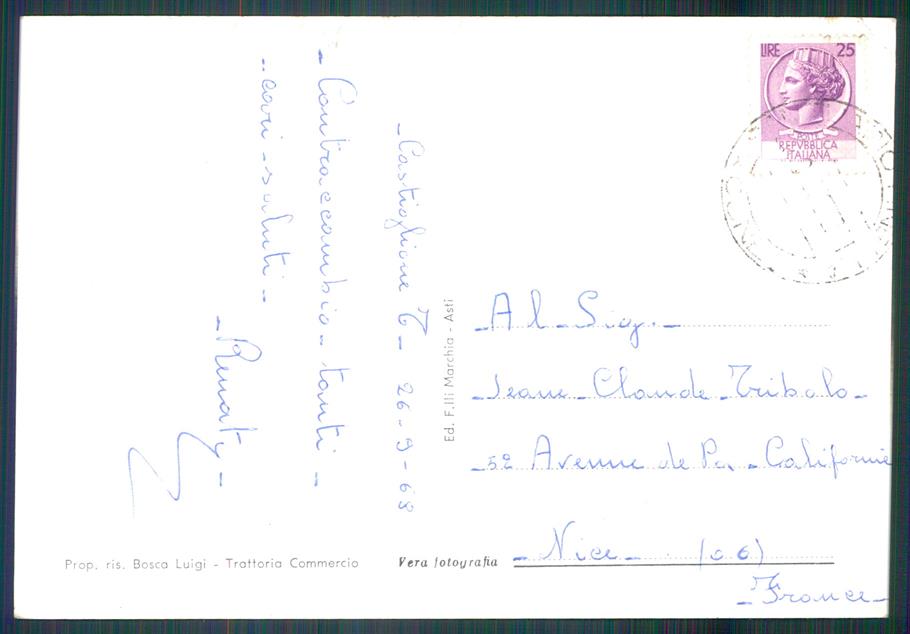 - Castiglione T - 26-9-68
- Contraccambio - tanti -
- cari - saluti -
- Renato -
LIRE 25
POSTE
REPVBBLICA
ITALIANA
Ed. F.lli Marchia - Asti
- Al - Sig. -
- Jeane - Claude - Tribolo -
- 52 Avenue de La - Californie
- Nice - (06)
- France -
Prop. ris. Bosca Luigi - Trattoria Commercio
Vera fotografia